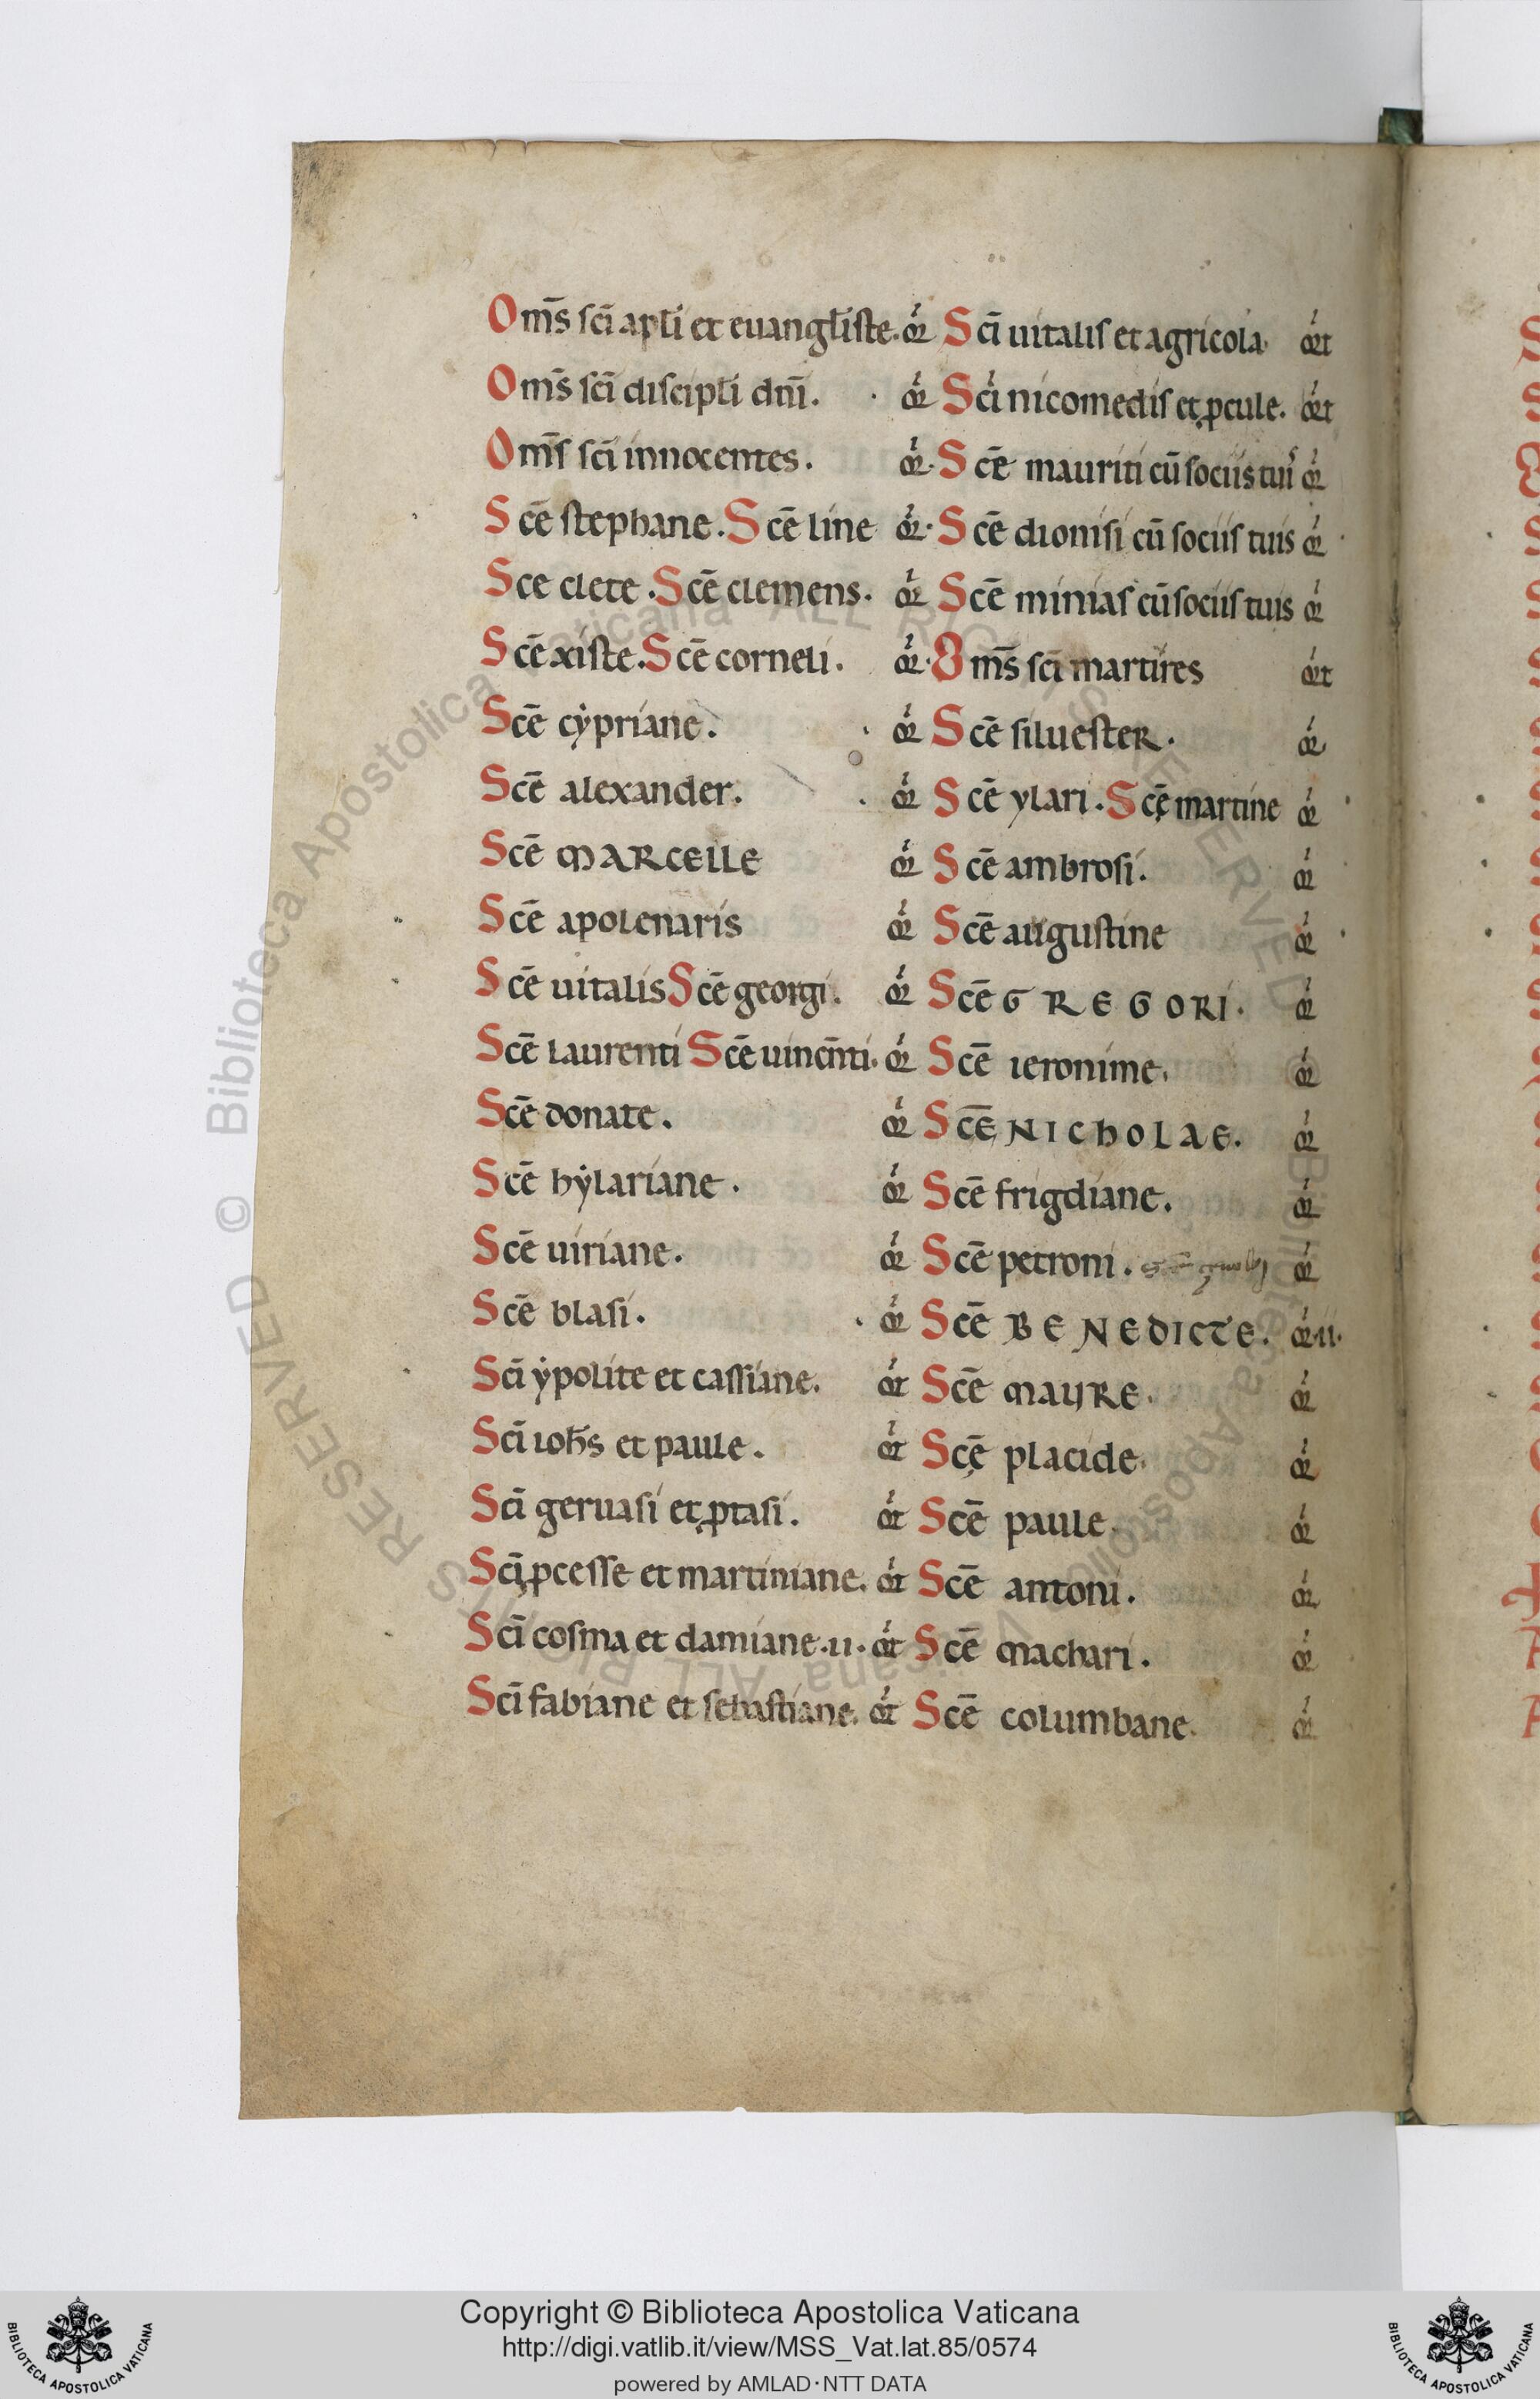 Om̄s sc̄i apłi et euangłiste. or̄
Om̄s sc̄i discipłi dn̄i. or̄
Om̄s sc̄i innocentes. or̄
Sc̄e stephane. Sc̄e line or̄
Sce clete. Sc̄e clemens. or̄
Sc̄e xiste. Sc̄e corneli. or̄
Sc̄e cẏpriane. or̄
Sc̄e alexander. or̄
Sc̄e MARCELLE or̄
Sc̄e apolenaris or̄
Sc̄e uitalis Sc̄e georgi. or̄
Sc̄e laurenti Sc̄e uincn̄ti. or̄
Sc̄e donate. or̄
Sc̄e hẏlariane. or̄
Sc̄e uiriane. or̄
Sc̄e blasi. or̄
Sc̄i ẏpolite et cassiane. or̄t
Sc̄i ioħs et paule. or̄t
Sc̄i geruasi et ꝓtasi. or̄t
Sc̄i ꝓcesse et martiniane. or̄t
Sc̄i cosma et damiane .ii. or̄t
Sc̄i fabiane et sebastiane. or̄t
Sc̄i uitalis et agricola. or̄t
Sc̄i nicomedis et ꝓcule. or̄t
Sc̄e mauriti cū sociis tuis or̄
Sc̄e dionisi cū sociis tuis or̄
Sc̄e minias cū sociis tuis or̄
Om̄s sc̄i martires or̄t
Sc̄e siluester. or̄
Sc̄e ylari. Sc̄e martine or̄
Sc̄e ambrosi. or̄
Sc̄e augustine or̄
Sc̄e GREGORI. or̄
Sc̄e ieronime. or̄
Sc̄e NICHOLAE. or̄
Sc̄e frigdiane. or̄
Sc̄e petroni. or̄
Sc̄e BENEDICTE. or̄ .ii.
Sc̄e MAURE. or̄
Sc̄e placide. or̄
Sc̄e paule. or̄
Sc̄e antoni. or̄
Sc̄e machari. or̄
Sc̄e columbane. or̄
© Biblioteca Apostolica Vaticana ALL RIGHTS RESERVED
© Biblioteca Apostolica Vaticana ALL RIGHTS RESERVED
BIBLIOTECA APOSTOLICA VATICANA
Copyright © Biblioteca Apostolica Vaticana
http://digi.vatlib.it/view/MSS_Vat.lat.85/0574
powered by AMLAD·NTT DATA
BIBLIOTECA APOSTOLICA VATICANA